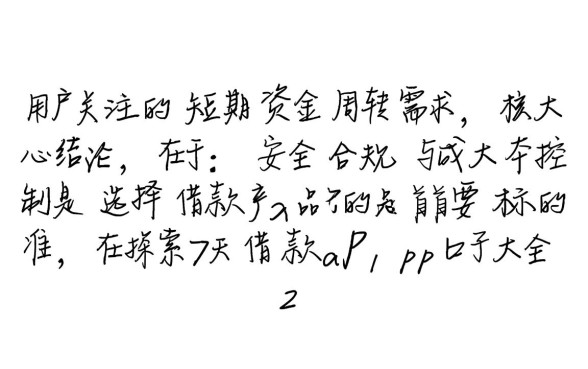 用户关注的短期资金周转需求，核大
心结论，在于：安全合规与成大本控
制是选择借款产λ品?的是首前要标的
准，在探索7天借款aP1pp口子大全
2